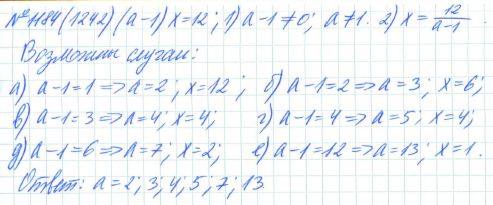 №1184 (1242) (a-1) x=12; 1) a-1≠0; a≠1. 2) x=12/(a-1).
Возможны случаи:
а) a-1=1=>a=2; x=12; б) a-1=2=>a=3; x=6;
в) a-1=3=>a=4; x=4; г) a-1=4=>a=5; x=4;
д) a-1=6=>a=7; x=2; е) a-1=12=>a=13; x=1.
Ответ: a=2; 3; 4; 5; 7; 13